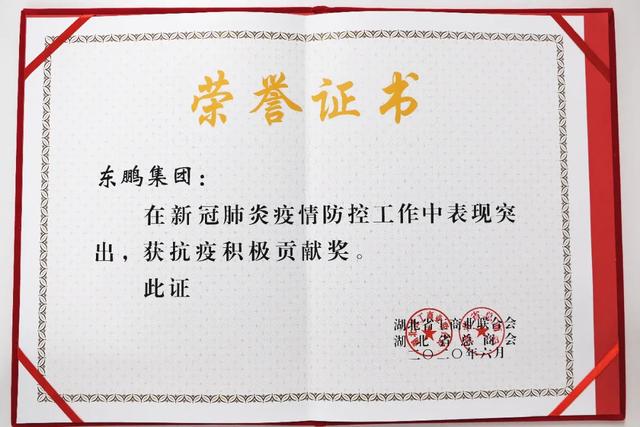 荣誉证书
东鹏集团：
在新冠肺炎疫情防控工作中表现突
出，获抗疫积极贡献奖。
此证
湖北省工商业联合会
湖北省总商会
二〇二〇年六月